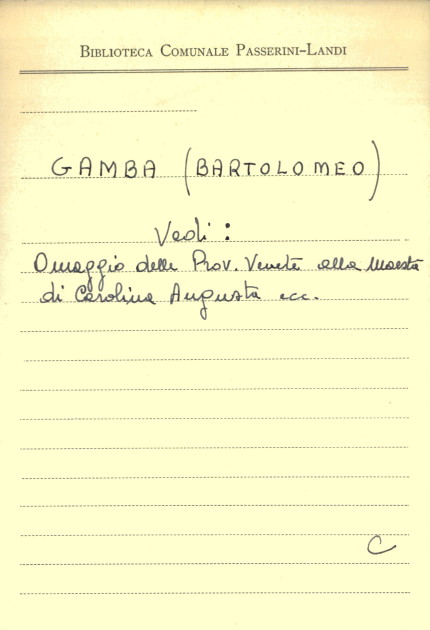 BIBLIOTECA COMUNALE PASSERINI-LANDI
GAMBA (BARTOLOMEO)
Vedi:
Omaggio delle Prov. Venete alla Maestà
di Carolina Augusta ecc.
C